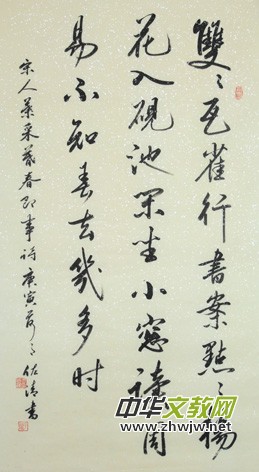 雙々瓦雀行書案點々楊
花入硯池閑坐小窗讀周
易不知春去幾多时
宋人葉采暮春即事詩庚寅佐清書
中华文教网
www.zhwjw.net